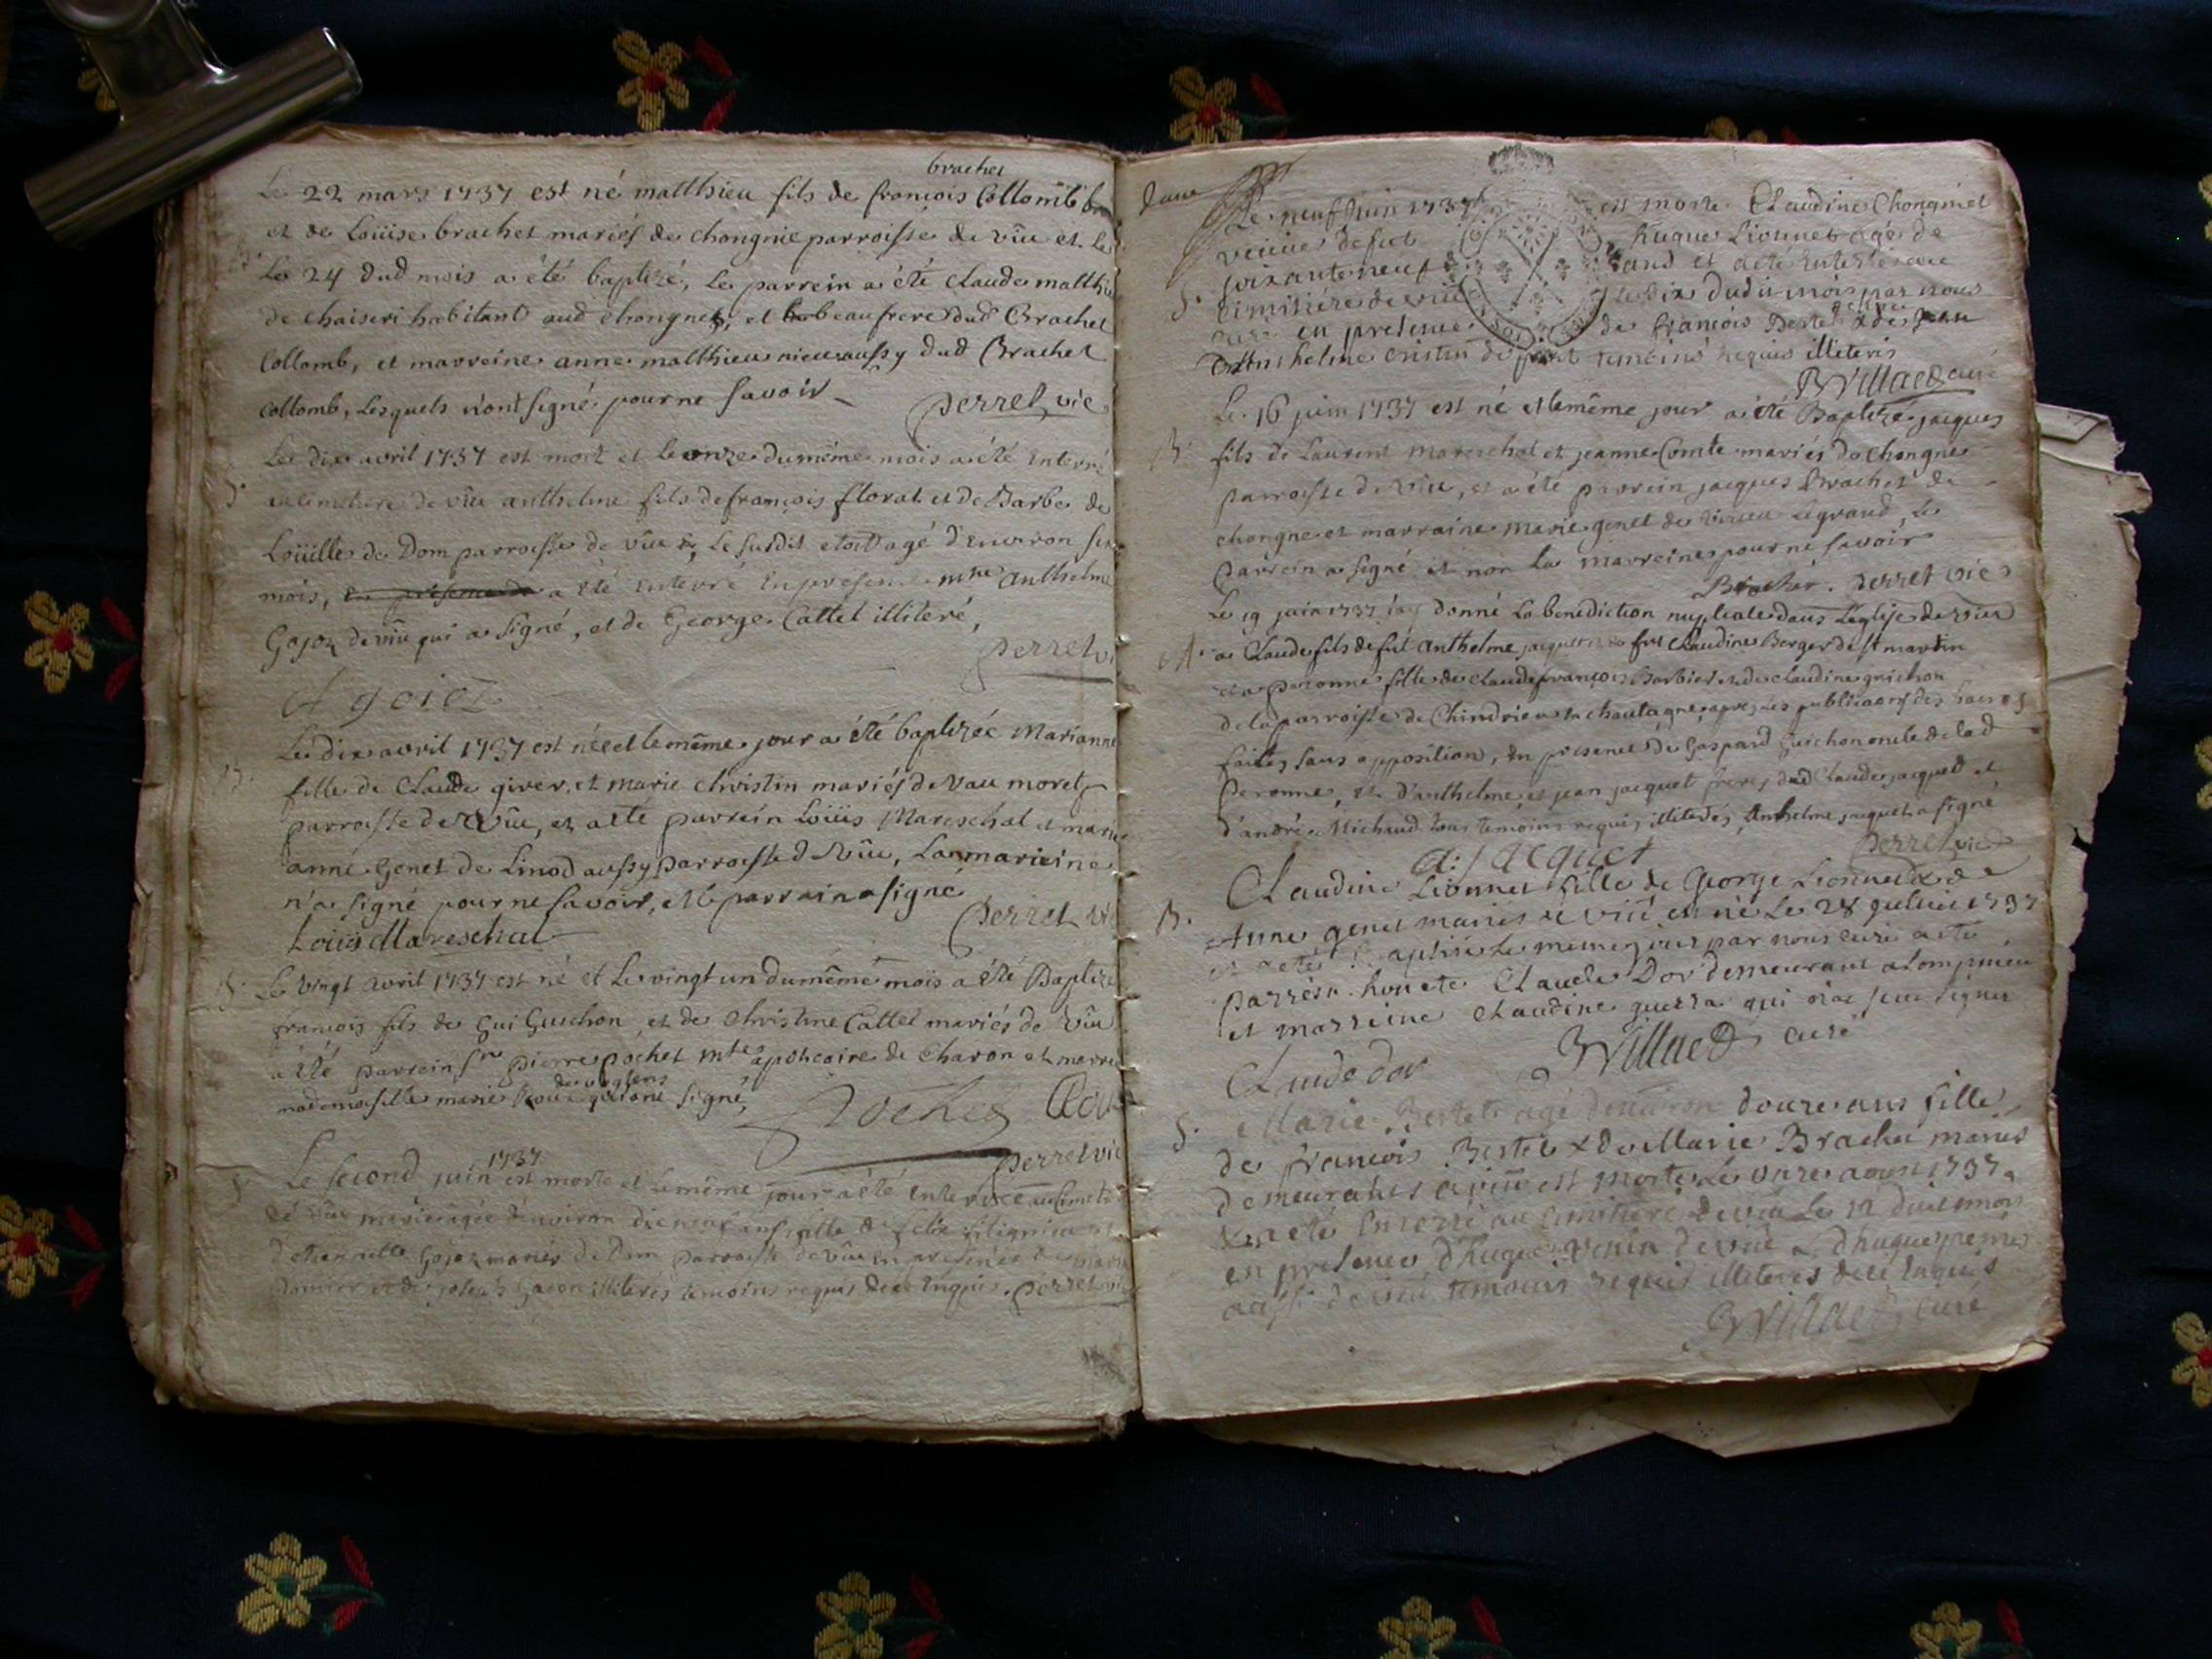 brachet
Le 22 mars 1737 est né matthieu fils de francois Collomb
et de Loüise brachet mariés de chongnie parroisse de vîu et le
Le 24 dud mois a été baptizé, le parrein a été claude matthieu
de chaiseri habitant aud chongnes, et beaufrere dud Brachet
Collomb, et marreine anne matthieu niece aussy dud Brachet
Collomb, Lesquels n'ont signé pour ne savoir
perret vic
Le dix avril 1737 est mort et le onze du même mois a été Enterré
au cimetiere de vîu anthelme fils de françois florat et de Barbe de
Loüille de Dom parroisse de vîu, le susdit etoit agé d'Environ six
mois, a été enterré En presence mtre anthelme
Gojoz de vîu qui a signé, et de George Cattet illiteré,
perret vi
A goioz
Le dix avril 1737 est née et le même jour a été baptizée Marianne
B.
fille de Claude giver et marie christin mariés de vau moret
parroisse de vîu, et a été parrein Loüis Mareschal et marie
anne Genet de Linod aussy parroisse de vîu, La marreine
n'a signé pour ne savoir, et le parrain a signé
perret vic
Loüis Mareschal
B. Le vingt avril 1737 est né et Le vingt un du même mois a été Baptizé
françois fils de Gui Guichon et de christine Cattet mariés de vîu
a été parrein sr pierre pochet mtre apoticaire de charon et marre
mademoiselle marie qui ont signé,
Pochet
perret vic
1737
S. Le second juin est morte et le même jour a été enterrée au cimetiere
de vîu marie agée d'environ dixneuf ans fille de felix
d'Etiennette Gojoz mariés de Dom parroisse de vîu en presence de
et de joseph illiterés temoins requis de ce Enquis. perret vic
Le neuf juin 1737 est morte Claudine Chongniet
veuue de feu hugue Lionnet agé de
soixante neuf ans et a eté Enterré au
S.
cimitiére de viu le dix dudit mois par nous
curé en presence de françois Bertet & de jean
anthelme cristin de temoins requis illiteris
BVillaed curé
Le 16 juin 1737 est né et le même jour a été Baptizé jacques
B. fils de Laurent mareschal et jeanne Comte mariés de chongne
parroisse de vîu, et a été parrein jacques Brachet de
chongne et marraine marie genet de virieu Le grand, Le
parrein a signé et non la marreine pour ne savoir
Brachet. perret vic
Le 19 juin 1737 j'ay donné La benediction nuptiale dans L'eglise de vîu
M. a Claude fils de fut anthelme jacquet et de fut claudine Berger de st martin
et a peronne fille de claude françois Barbier et de claudine guichon
de la parroisse de Chindrieu en chautagne apres les publications des bans
faites sans opposition, En presence de Gaspard Guichon oncle de la d
peronne, et d'anthelme et jean jacquet freres dud claude jacquet et
d'andré Michaud tous temoins requis illiterés, anthelme jacquet a signé
perret vic
a: jacquet
Claudine Lionnet fille de George Lionnet & de
B.
Anne genet mariés à viû est né Le 28 1737
et a eté Baptisé le meme jour par nous curé a eté
parresn honete Claude Dor demeurant a Lompnieu
et marreine Claudine guerra qui n'a seu signer
Claude dor
BVillaed curé
S. Marie Bertet agé d'environ douze ans fille
de francois Bertet & de Marie Brachet mariés
demeurants a viû est morte Le onze aoust 1737
& a eté Enterré au cimitiére de viû Le 12 du dit mois
en presence d'hugue de viû & d'hugue
aussi de viû temoins requis illiteres de ce Enquis
BVillaed curé